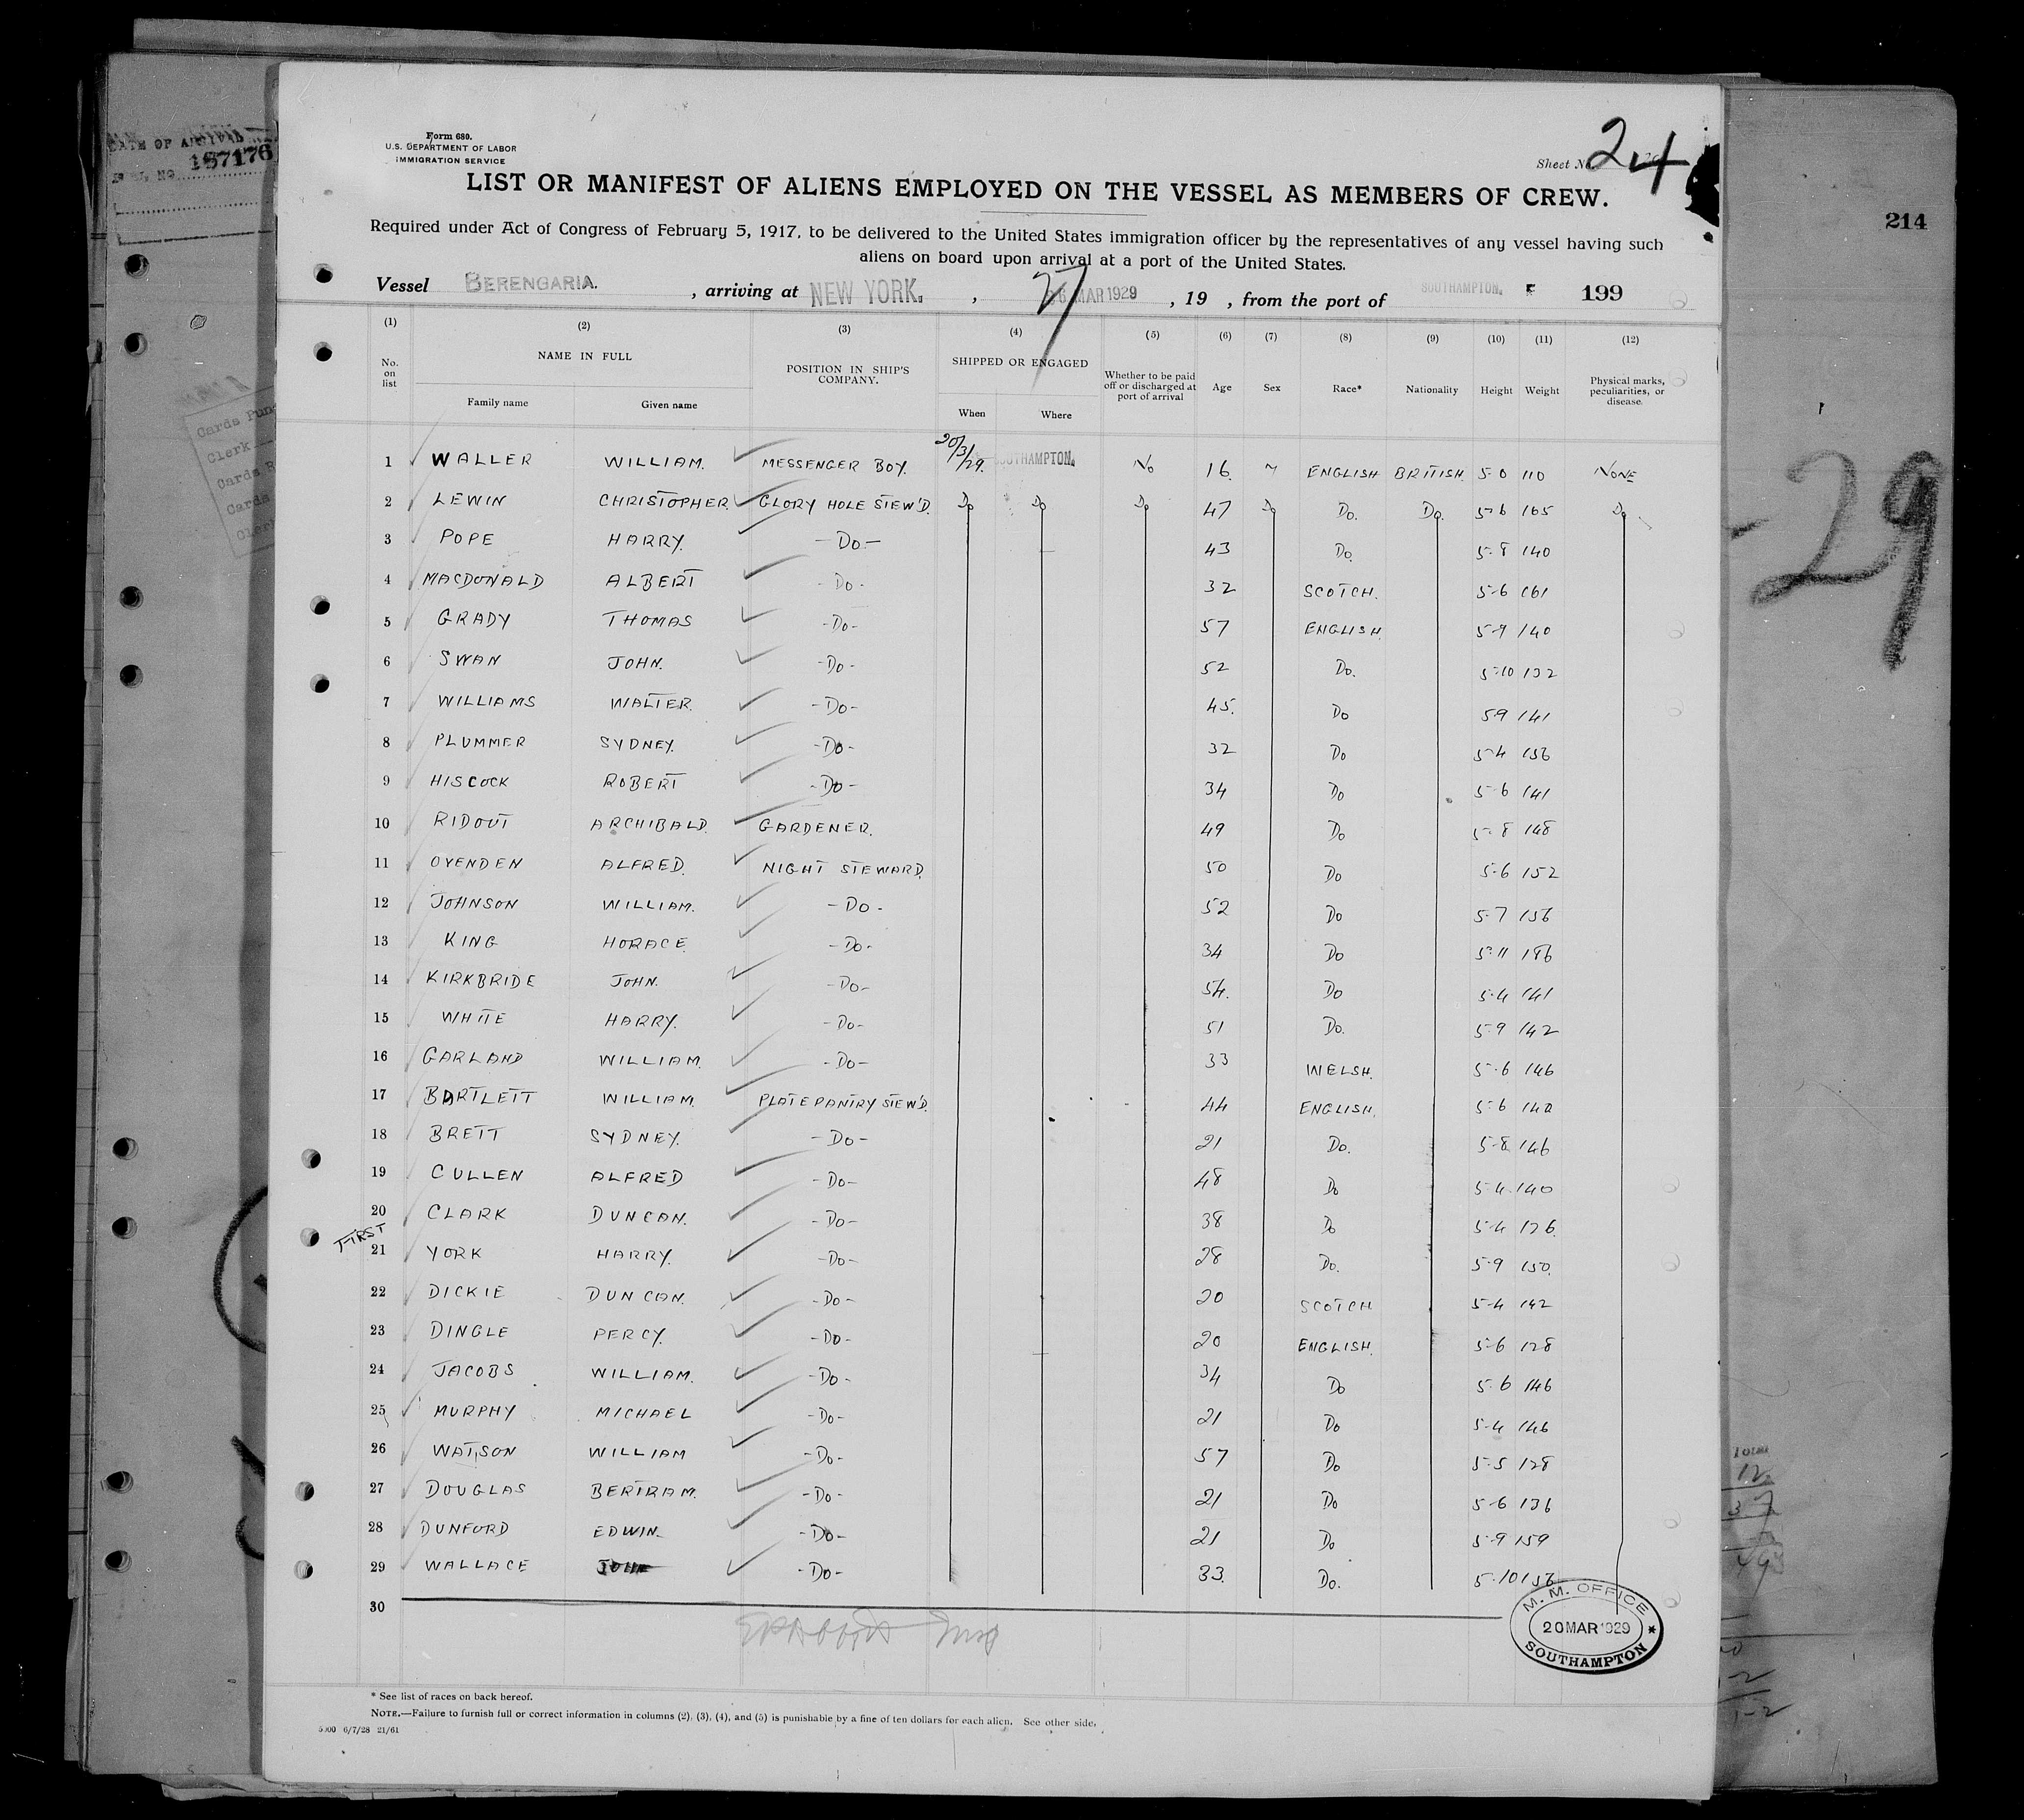 DATE OF ARRIVAL
187176
214
Form 680.
U.S. DEPARTMENT OF LABOR
IMMIGRATION SERVICE
Sheet No. 24
LIST OR MANIFEST OF ALIENS EMPLOYED ON THE VESSEL AS MEMBERS OF CREW.
Required under Act of Congress of February 5, 1917, to be delivered to the United States immigration officer by the representatives of any vessel having such
aliens on board upon arrival at a port of the United States.
Vessel BERENGARIA. , arriving at NEW YORK. , 27 MAR 1929 , 19 , from the port of SOUTHAMPTON. 199
(1) (2) (3) (4) (5) (6) (7) (8) (9) (10) (11) (12)
No. on list NAME IN FULL Family name Given name POSITION IN SHIP'S COMPANY. SHIPPED OR ENGAGED When Where Whether to be paid off or discharged at port of arrival Age Sex Race* Nationality Height Weight Physical marks, peculiarities, or disease.
1 WALLER WILLIAM. MESSENGER BOY. 20/3/29. SOUTHAMPTON. No 16. M ENGLISH BRITISH. 5-0 110 NONE
2 LEWIN CHRISTOPHER. GLORY HOLE STEW'D. Do Do Do 47 Do Do. Do. 5-6 165 Do
3 POPE HARRY. -Do- 43 Do. 5-8 140
4 MACDONALD ALBERT -Do- 32 SCOTCH. 5-6 161
5 GRADY THOMAS -Do- 57 ENGLISH. 5-9 140
6 SWAN JOHN. -Do- 52 Do. 5-10 132
7 WILLIAMS WALTER. -Do- 45. Do 5-9 141
8 PLUMMER SYDNEY. -Do- 32 Do 5-4 136
9 HISCOCK ROBERT -Do- 34 Do 5-6 141
10 RIDOUT ARCHIBALD. GARDENER. 49 Do 5-8 148
11 OVENDEN ALFRED. NIGHT STEWARD. 50 Do 5-6 152
12 JOHNSON WILLIAM. -Do- 52 Do 5-7 156
13 KING HORACE. -Do- 34 Do 5-11 186
14 KIRKBRIDE JOHN. -Do- 54. Do 5-4 141
15 WHITE HARRY. -Do- 51 Do. 5-9 142
16 GARLAND WILLIAM. -Do- 33 WELSH. 5-6 146
17 BARTLETT WILLIAM. PLATE PANTRY STEW'D. 44 ENGLISH. 5-6 140
18 BRETT SYDNEY. -Do- 21 Do. 5-8 146
19 CULLEN ALFRED -Do- 48 Do 5-4 140
20 CLARK DUNCAN. -Do- 38 Do 5-4 126.
FIRST
21 YORK HARRY. -Do- 28 Do. 5-9 150.
22 DICKIE DUNCAN. -Do- 20 SCOTCH 5-4 142
23 DINGLE PERCY. -Do- 20 ENGLISH. 5-6 128
24 JACOBS WILLIAM. -Do- 34 Do 5-6 146
25 MURPHY MICHAEL -Do- 21 Do 5-4 146
26 WATSON WILLIAM -Do- 57 Do 5-5 128
27 DOUGLAS BERTRAM. -Do- 21 Do 5-6 136
28 DUNFORD EDWIN. -Do- 21 Do 5-9 159
29 WALLACE JOHN -Do- 33. Do. 5-10
30
M. M. OFFICE
20 MAR 1929
SOUTHAMPTON
* See list of races on back hereof.
NOTE.—Failure to furnish full or correct information in columns (2), (3), (4), and (5) is punishable by a fine of ten dollars for each alien. See other side.
5000 6/7/28 21/61
Clerk
Cards
-29